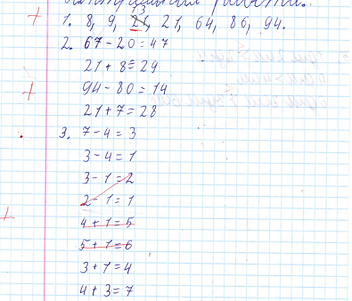 1. 8, 9, 21, 21, 64, 86, 94.
2. 67 - 20 = 47
21 + 8 = 29
94 - 80 = 14
21 + 7 = 28
3. 7 - 4 = 3
3 - 4 = 1
3 - 1 = 2
2 - 1 = 1
4 + 1 = 5
5 + 1 = 6
3 + 1 = 4
4 + 3 = 7